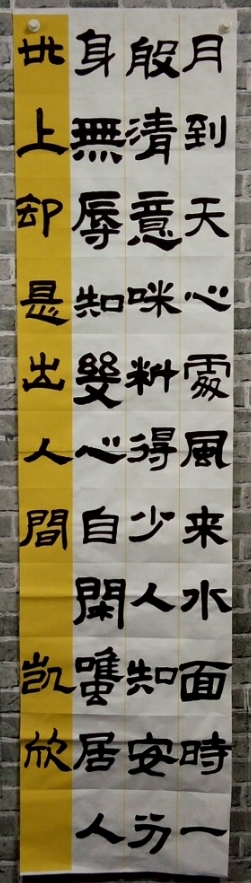 月到天心處風来水面時一
般清意味料得少人知安分
身無辱知幾心自閑雖居人
世上却是出人間 凯欣